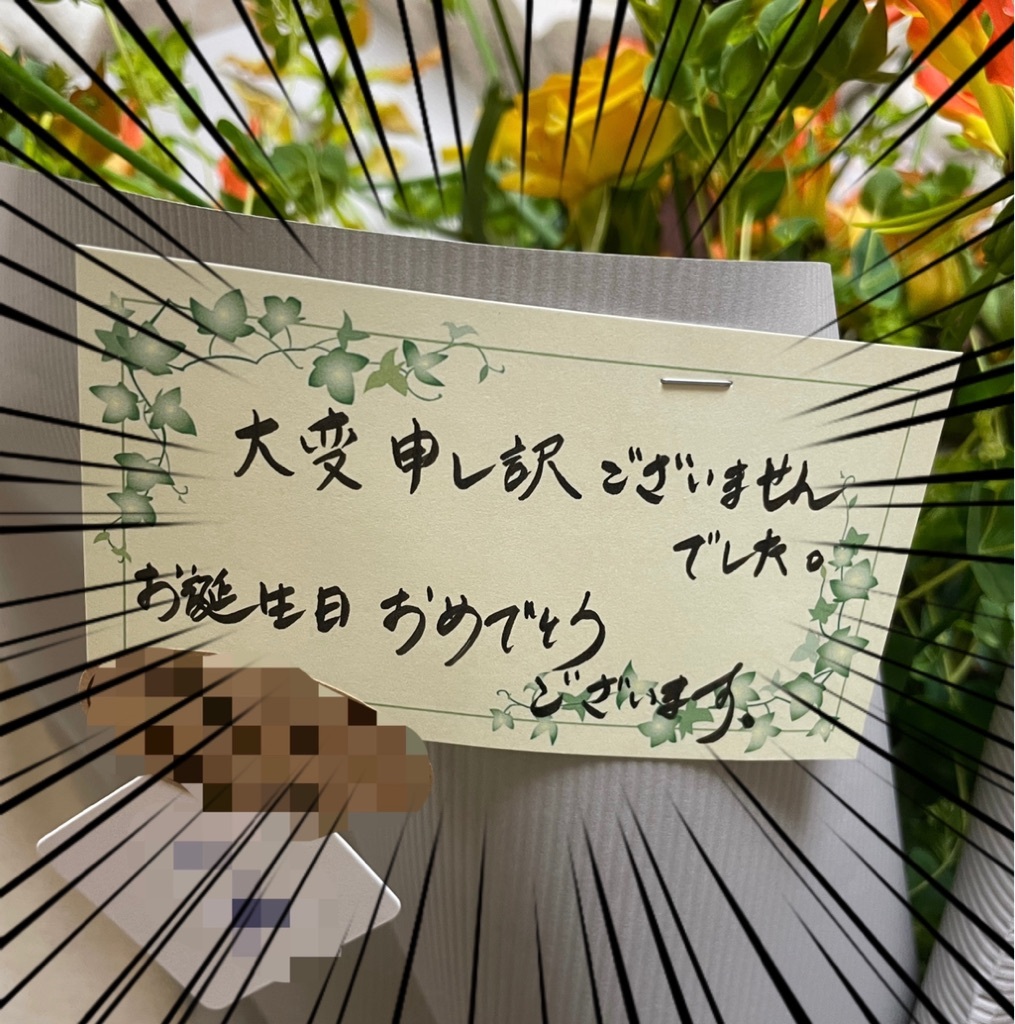 大変申し訳ございません
でした。
お誕生日おめでとう
ございます。